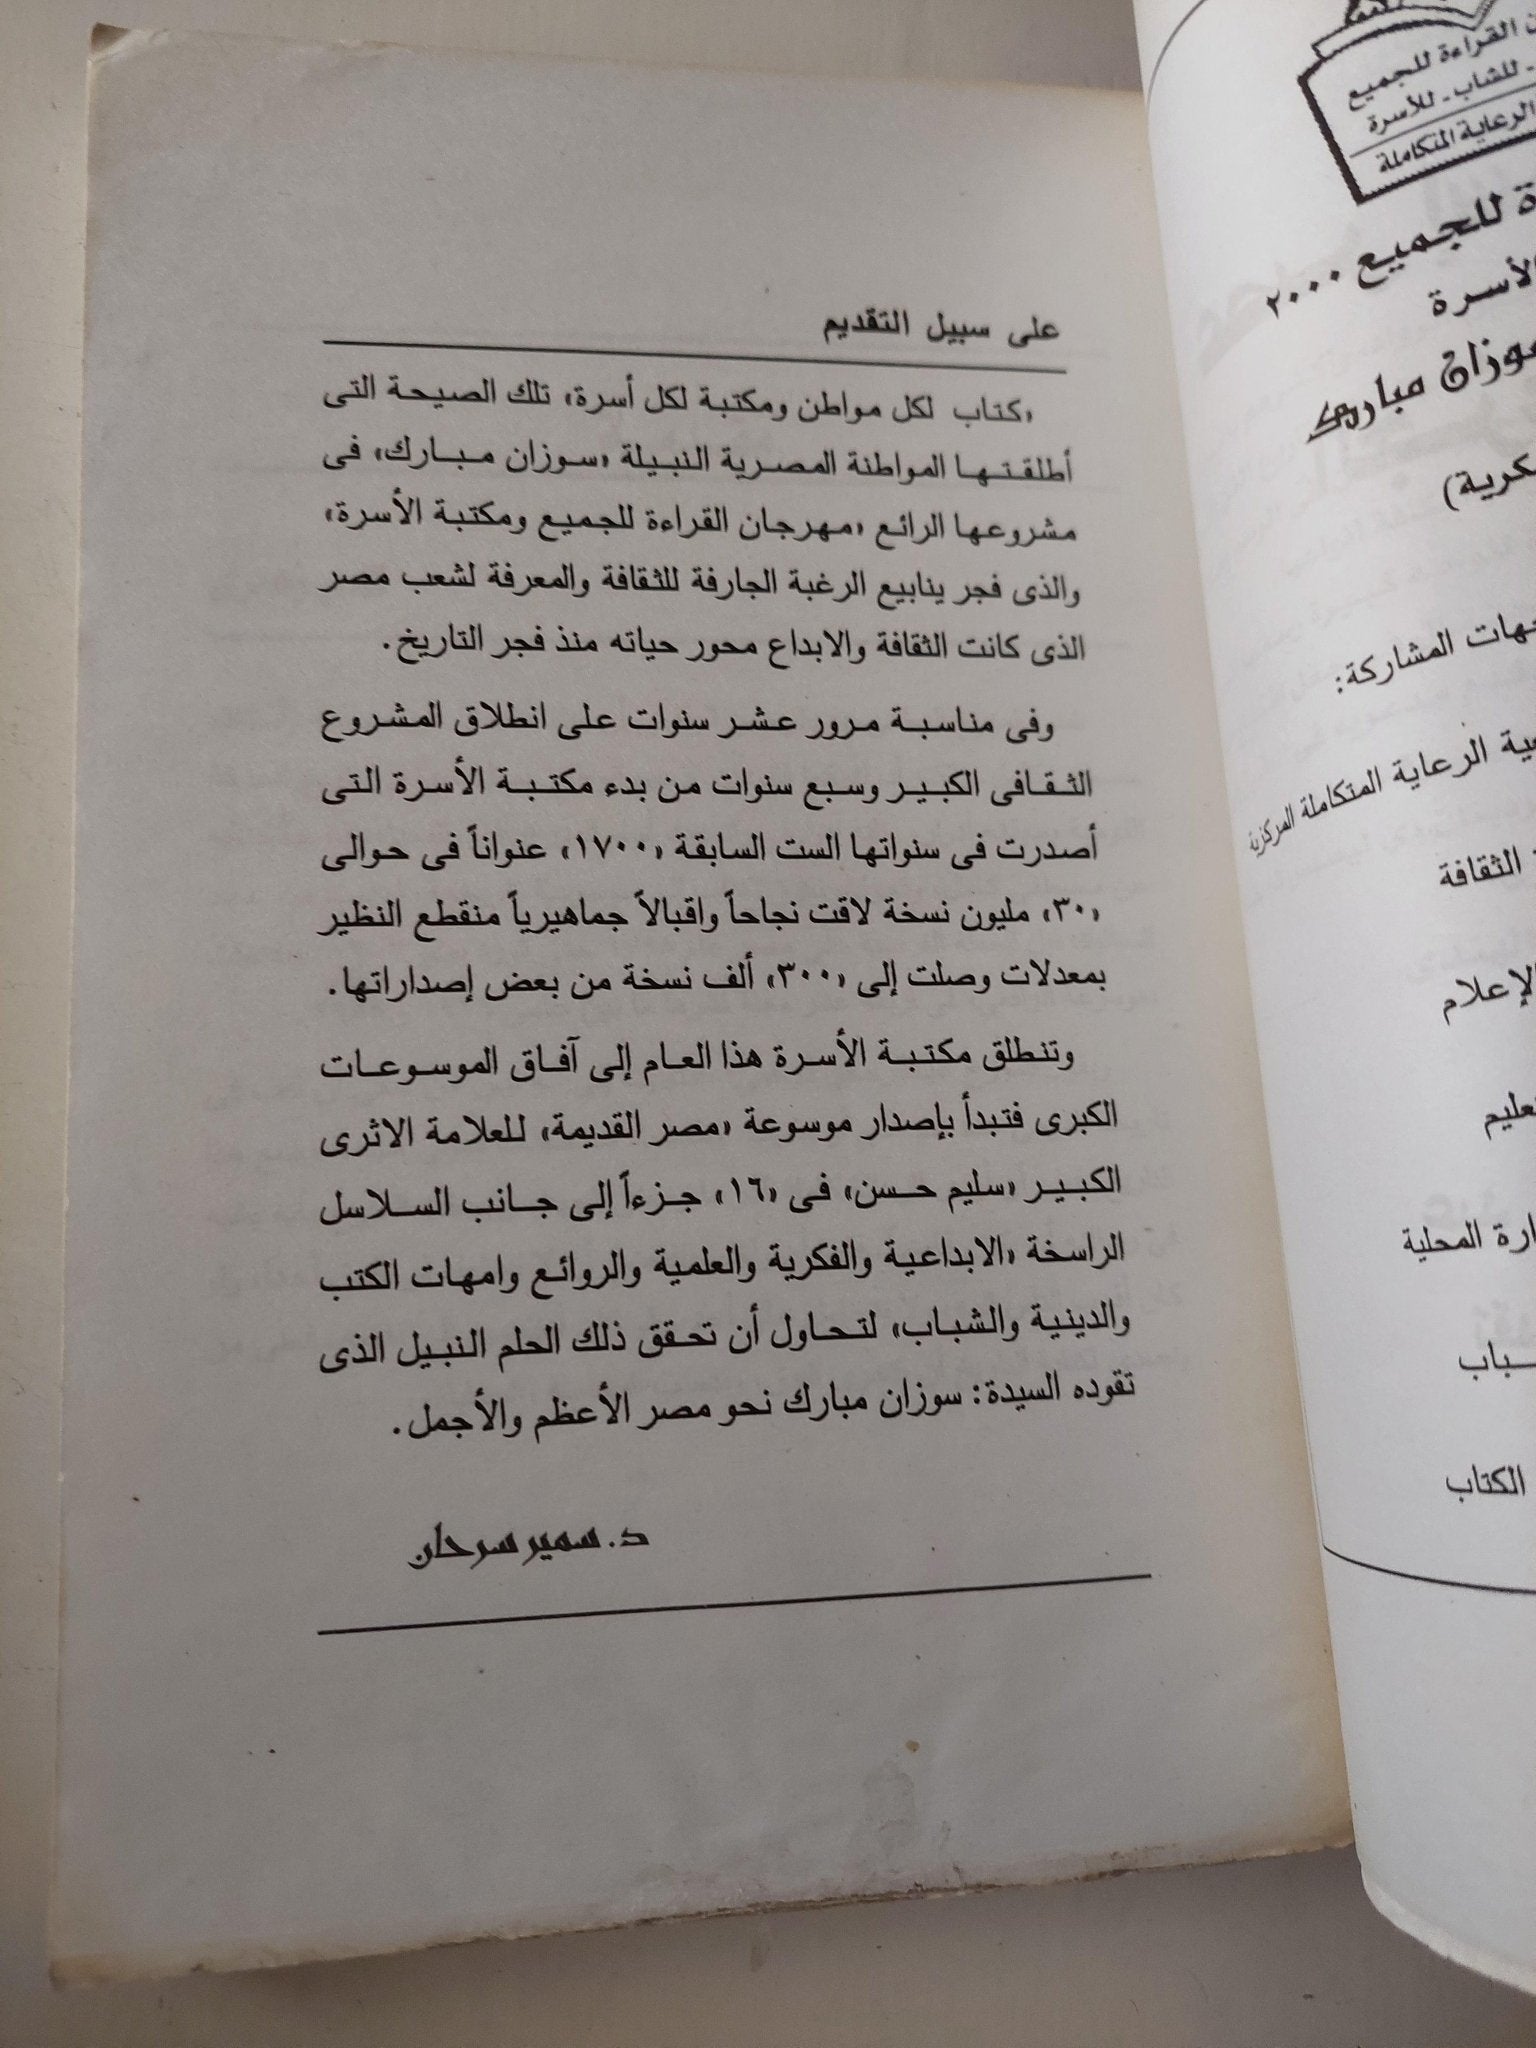 ن القراءة للجميع
للشباب - للأسرة
الرعاية المتكاملة
ة للجميع ٢٠٠٠
الأسرة
سوزان مبارك
كرية)
جهات المشاركة:
عية الرعاية المتكاملة المركزية
ة الثقافة
الإعلام
تعليم
دارة المحلية
ـباب
الكتاب
على سبيل التقديم
«كتاب لكل مواطن ومكتبة لكل أسرة» تلك الصيحة التى
أطلقتها المواطنة المصرية النبيلة «سوزان مبارك» فى
مشروعها الرائع «مهرجان القراءة للجميع ومكتبة الأسرة»
والذى فجر ينابيع الرغبة الجارفة للثقافة والمعرفة لشعب مصر
الذى كانت الثقافة والابداع محور حياته منذ فجر التاريخ.
وفى مناسبة مرور عشر سنوات على انطلاق المشروع
الثقافى الكبير وسبع سنوات من بدء مكتبة الأسرة التى
أصدرت فى سنواتها الست السابقة «١٧٠٠» عنواناً فى حوالى
«٣٠» مليون نسخة لاقت نجاحاً واقبالاً جماهيرياً منقطع النظير
بمعدلات وصلت إلى «٣٠٠» ألف نسخة من بعض إصداراتها.
وتنطلق مكتبة الأسرة هذا العام إلى آفاق الموسوعات
الكبرى فتبدأ بإصدار موسوعة «مصر القديمة» للعلامة الاثرى
الكبير «سليم حسن» فى «١٦» جزءاً إلى جانب السلاسل
الراسخة «الابداعية والفكرية والعلمية والروائع وامهات الكتب
والدينية والشباب» لتحاول أن تحقق ذلك الحلم النبيل الذى
تقوده السيدة: سوزان مبارك نحو مصر الأعظم والأجمل.
د. سمير سرحان